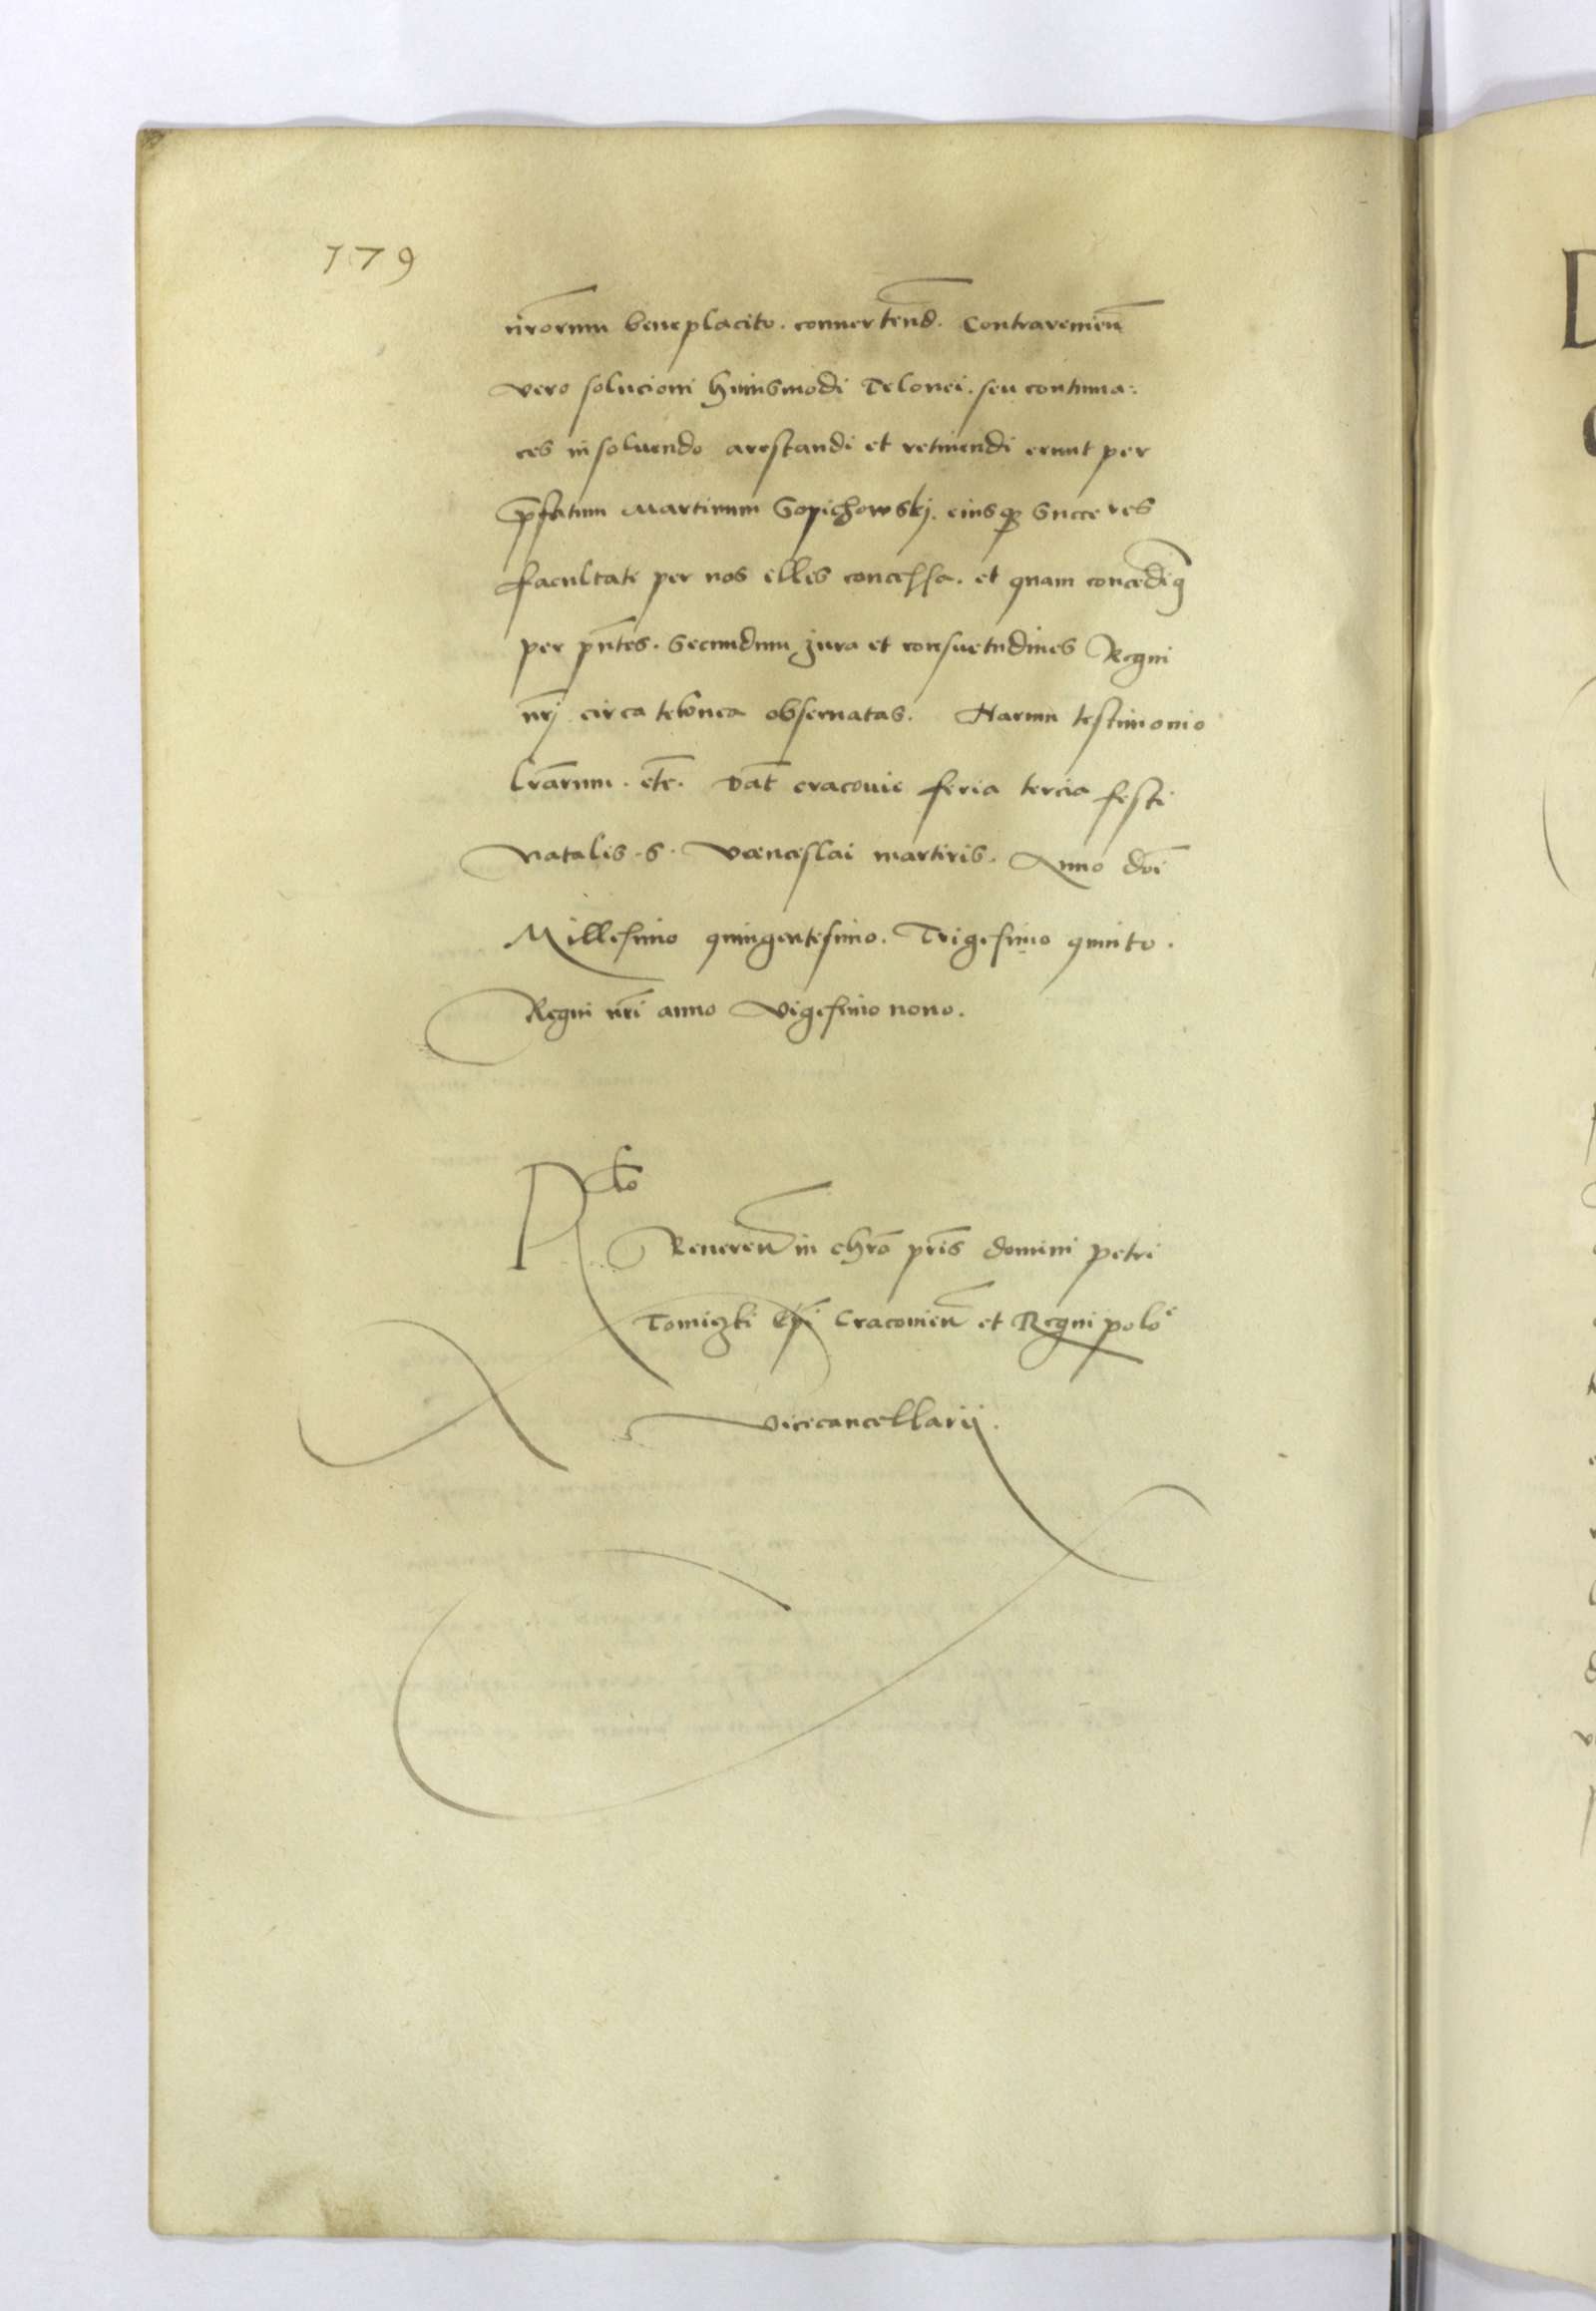 179
nr̄orum beneplacito. conuertend̄. Contravenien̄
vero solucioni huiusmodi Telonei. seu contuma:
ces in soluendo arestandi et retinendi erunt per
p̄fatum Martinum Sopichowskj. eiusqꝫ Succeres
facultate per nos illis concessa. et quam concedimꝰ
per pn̄tes. Secundum Jura et consuetudines Regni
nr̄j circa telonea obseruatas. Harum testimonio
l̄rarum. etc̄. Dat̄ cracouie feria tercia festi
Natalis. S. Venceslai martiris. Anno dn̄i
Millesimo quingentesimo. Trigesimo quinto.
Regni nr̄i anno Vigesimo nono.
R̄lo
Reueren̄ in chr̄o pr̄is domini petri
Tomiczki Ep̄i Cracouien̄ et Regni polo̅e
Vicecancellarij.